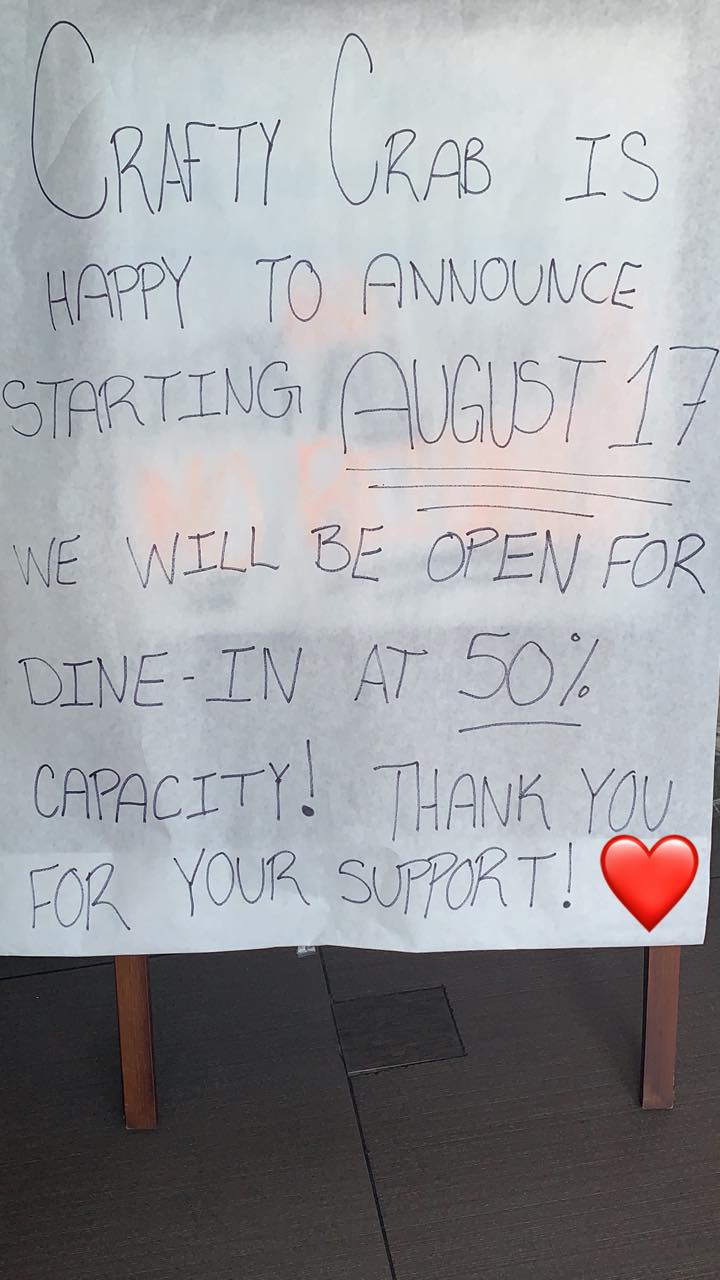 CRAFTY CRAB IS
HAPPY TO ANNOUNCE
STARTING AUGUST 17
WE WILL BE OPEN FOR
DINE-IN AT 50%
CAPACITY! THANK YOU
FOR YOUR SUPPORT! ❤️